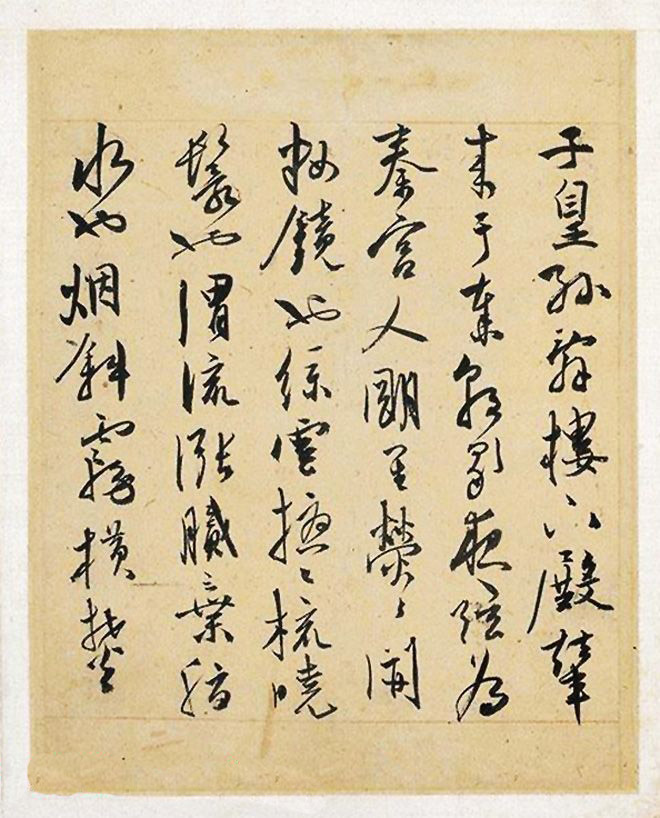 子皇孫辭樓下殿輦
來于秦朝歌夜弦為
秦宮人明星熒々開
妝鏡也綠雲擾々梳曉
鬟也渭流漲膩棄脂
水也烟斜霧橫焚